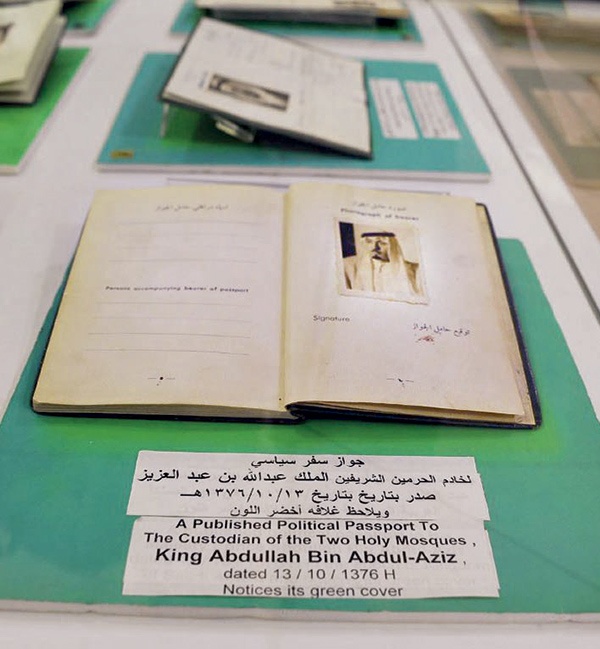 أسماء مرافقي حامل الجواز
Persons accompanying bearer of passport
صورة حامل الجواز
Photograph of bearer
Signature
توقيع حامل الجواز
جواز سفر سياسي
لخادم الحرمين الشريفين الملك عبدالله بن عبد العزيز
صدر بتاريخ بتاريخ ١٣٧٦/١٠/١٣هــ
ويلاحظ غلافه أخضر اللون
A Published Political Passport To
The Custodian of the Two Holy Mosques ,
King Abdullah Bin Abdul-Aziz ,
dated 13 / 10 / 1376 H
Notices its green cover